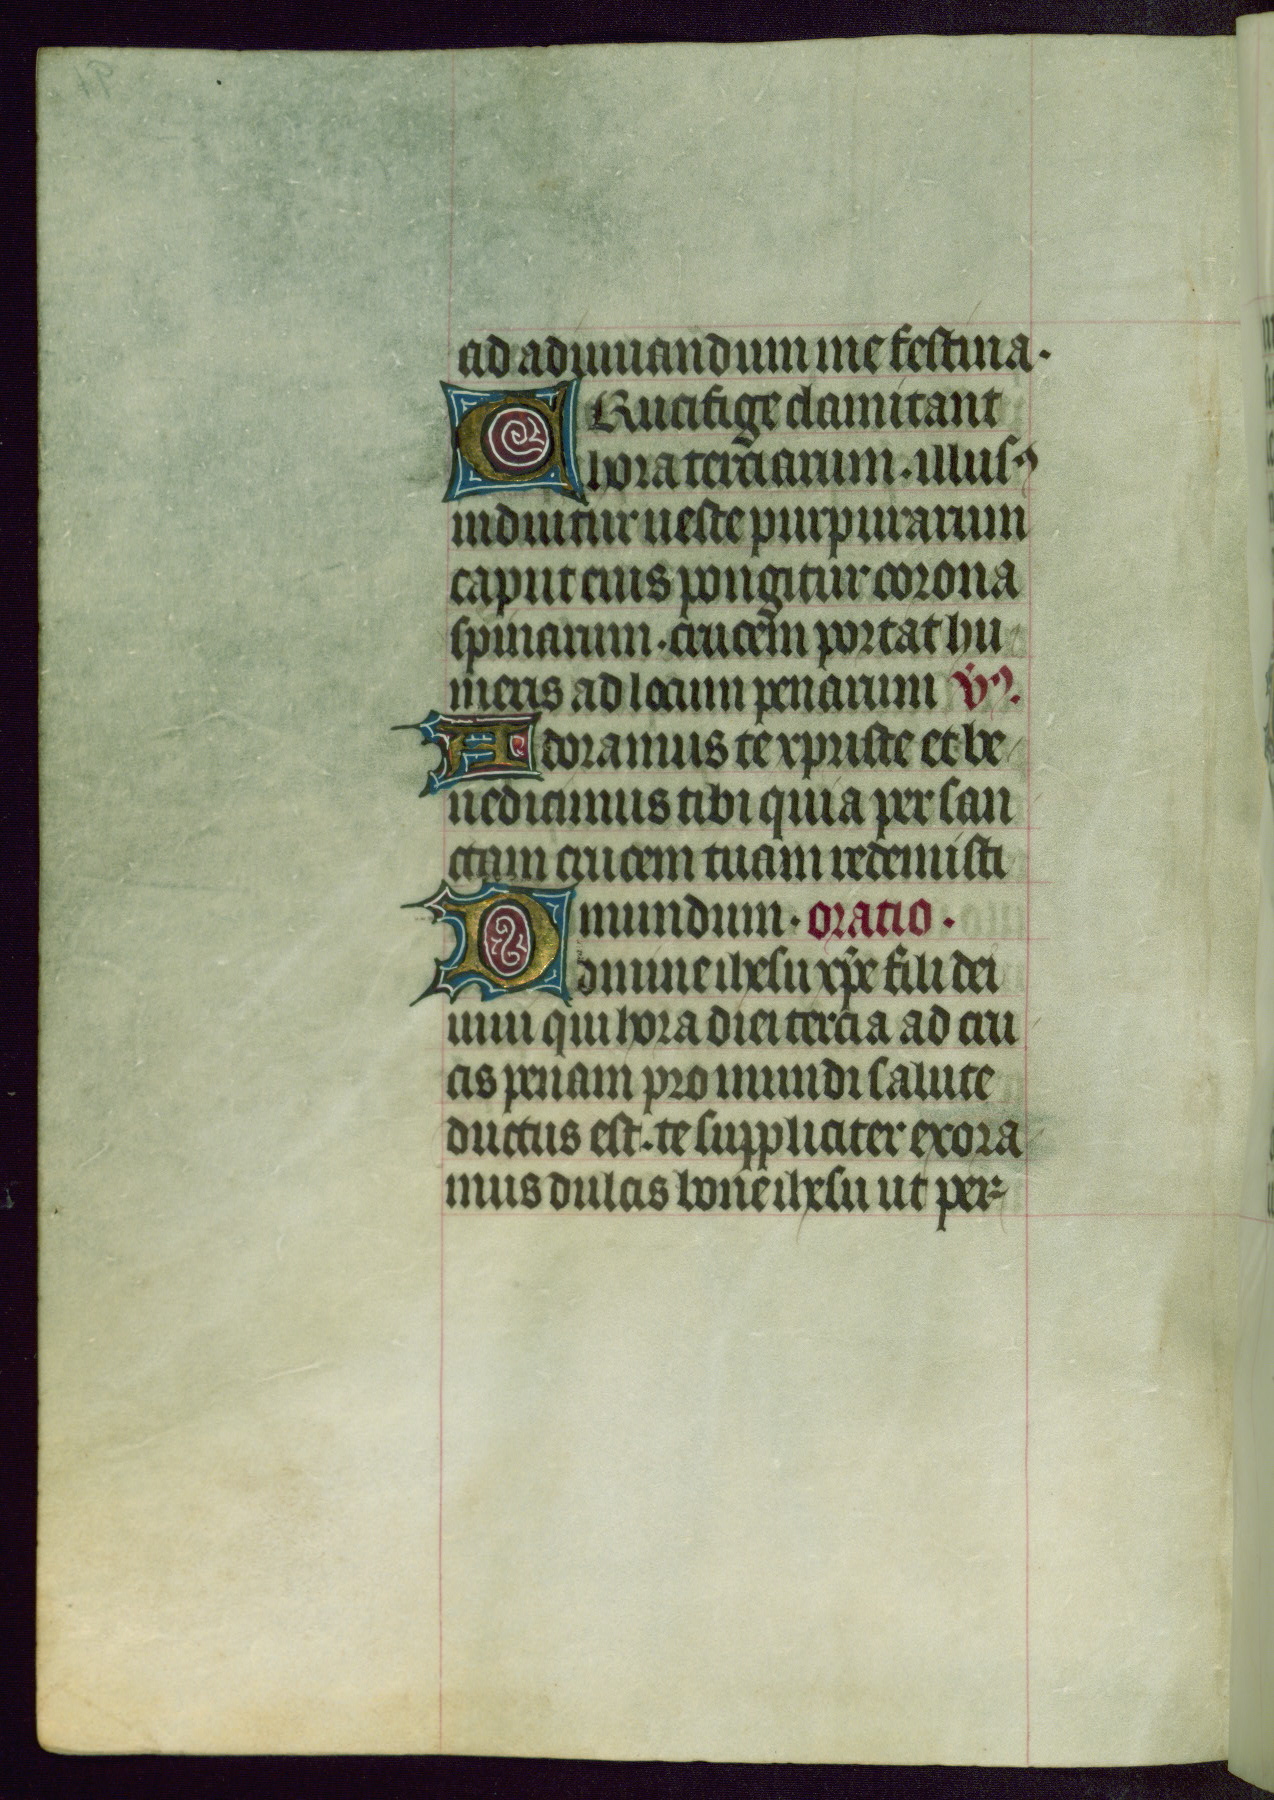 ad adiuuandum me festina.
CRucifige clamitant
hora terciarum. illuso
induitur ueste purpurarum
caput eius pongitur corona
spinarum. crucem portat hu
meris ad locum penarum v̾.
Adoramus te xpriste et be
nedicimus tibi quia per san
ctam crucem tuam redemisti
mundum. oratio.
Domine ihesu xp̄e fili dei
uiui qui hora diei tercia ad cru
cis penam pro mundi salute
ductus est. te suppliciter exora
mus dulcis bone ihesu ut per-